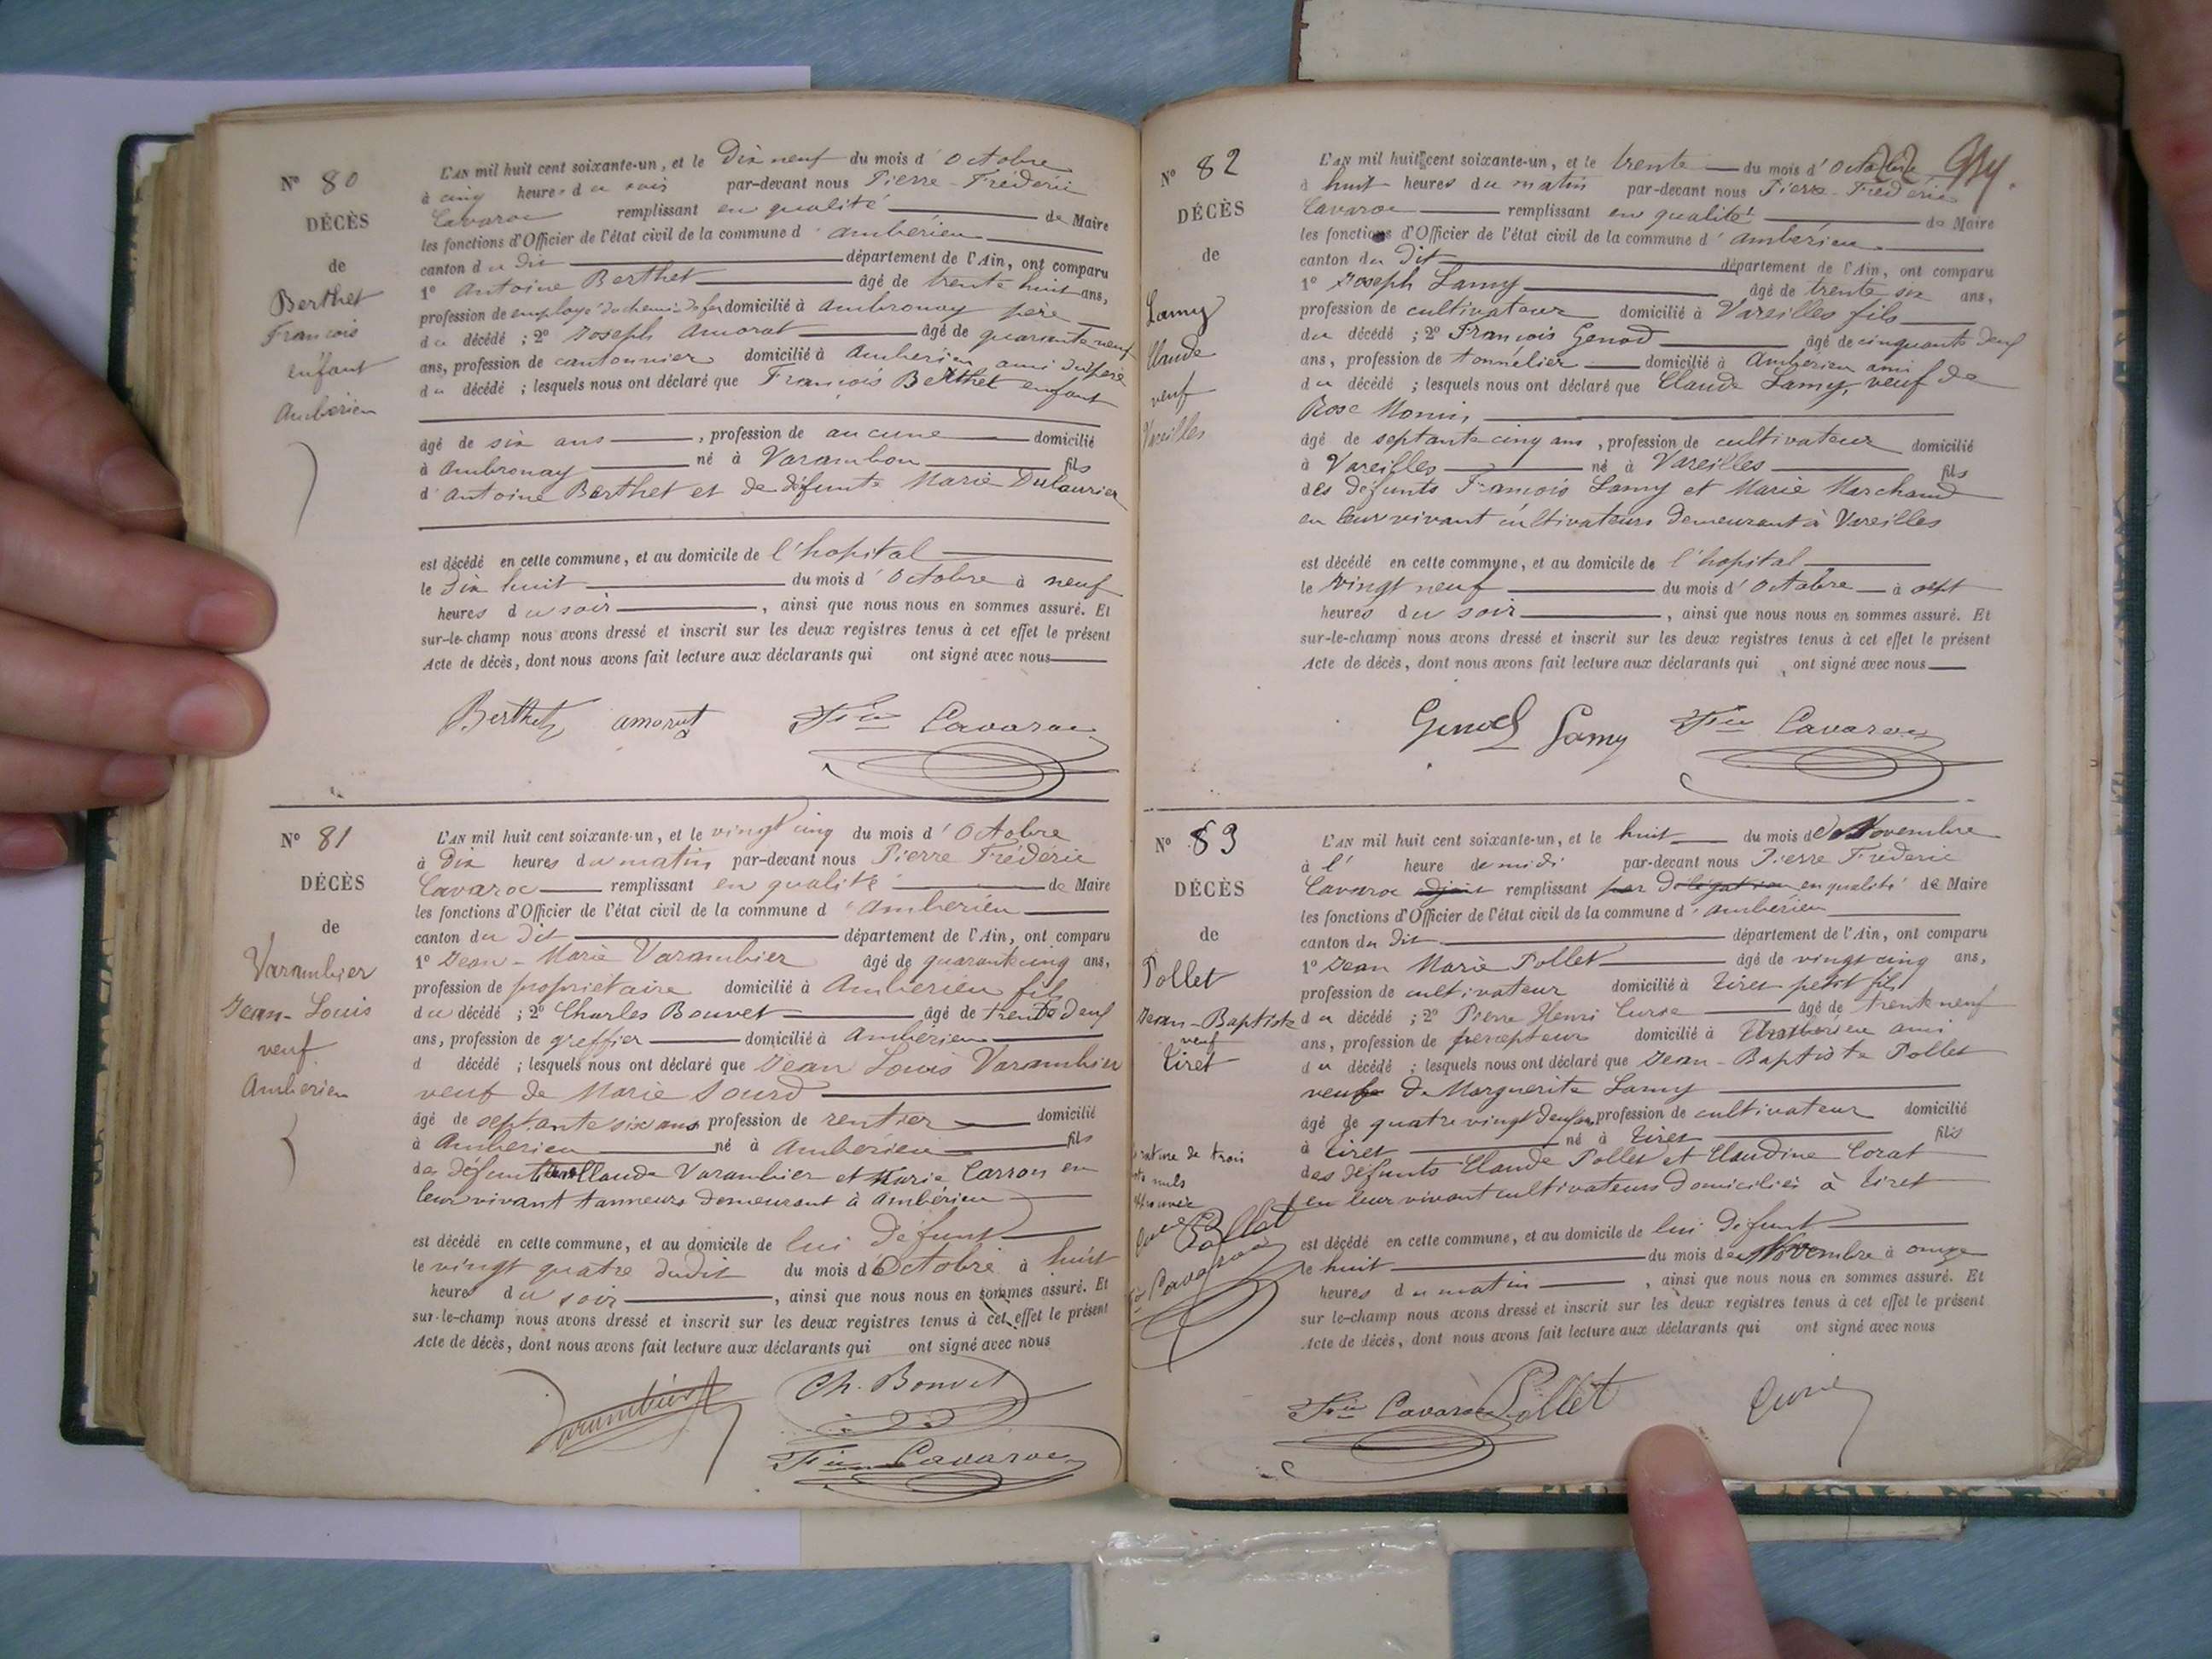 N° 80
DÉCÈS
de
Berthet
François
enfant
Ambérieu
L'AN mil huit cent soixante-un, et le Dix neuf du mois d'Octobre
à cinq heures du soir par-devant nous Pierre-Frédéric
Cavaroc remplissant en qualité de Maire
les fonctions d'Officier de l'état civil de la commune d'ambérieu
canton du dit département de l'Ain, ont comparu
1° Antoine Berthet âgé de trente huit ans,
profession de employé du chemin de fer domicilié à ambronay père
du décédé ; 2° Joseph Amorat âgé de quarante neuf
ans, profession de cantonnier domicilié à Ambérieu ami du père
du décédé ; lesquels nous ont déclaré que François Berthet enfant
âgé de six ans, profession de aucune domicilié
à Ambronay né à Varambon fils
d'Antoine Berthet et de défunte Marie Dulaurier
est décédé en cette commune, et au domicile de l'hopital
le Dix huit du mois d'Octobre à neuf
heures du soir, ainsi que nous nous en sommes assuré. Et
sur-le-champ nous avons dressé et inscrit sur les deux registres tenus à cet effet le présent
Acte de décès, dont nous avons fait lecture aux déclarants qui ont signé avec nous
Berthet amorat Fric Cavaroc
N° 81
DÉCÈS
de
Varambier
Jean-Louis
veuf
Amberieu
L'AN mil huit cent soixante-un, et le vingt cinq du mois d'Octobre
à dix heures du matin par-devant nous Pierre Frédéric
Cavaroc remplissant en qualité de Maire
les fonctions d'Officier de l'état civil de la commune d'ambérieu
canton du dit département de l'Ain, ont comparu
1° Jean-Marie Varambier âgé de quarante cinq ans,
profession de propriétaire domicilié à Amberieu fils
du décédé ; 2° Charles Bouvet âgé de trente deux
ans, profession de greffier domicilié à Ambérieu
d décédé ; lesquels nous ont déclaré que Jean Louis Varambier
veuf de Marie Sourd
âgé de septante six ans profession de rentier domicilié
à Amberieu né à Ambérieu fils
des défunts Claude Varambier et Marie Carron en
leur vivant tanneurs demeurant à Ambérieu
est décédé en cette commune, et au domicile de lui défunt
le vingt quatre dudit du mois d'Octobre à huit
heures du soir, ainsi que nous nous en sommes assuré. Et
sur-le-champ nous avons dressé et inscrit sur les deux registres tenus à cet effet le présent
Acte de décès, dont nous avons fait lecture aux déclarants qui ont signé avec nous
Varambier Ch. Bouvet
Fric Cavaroc
N° 82
DÉCÈS
de
Lamy
Claude
veuf
Vareilles
L'AN mil huit cent soixante-un, et le trente du mois d'Octobre
à huit heures du matin par-devant nous Pierre-Frédéric
Cavaroc remplissant en qualité de Maire
les fonctions d'Officier de l'état civil de la commune d'ambérieu
canton du Dit département de l'Ain, ont comparu
1° Joseph Lamy âgé de trente six ans,
profession de cultivateur domicilié à Vareilles fils
du décédé ; 2° François Genod âgé de cinquante deux
ans, profession de tonnelier domicilié à Ambérieu ami
du décédé ; lesquels nous ont déclaré que Claude Lamy, veuf de
Rose Monin,
âgé de septante cinq ans, profession de cultivateur domicilié
à Vareilles né à Vareilles fils
des défunts François Lamy et Marie Marchand
en leur vivant cultivateurs demeurant à Vareilles
est décédé en cette commune, et au domicile de l'hopital
le vingt neuf du mois d'Octobre à sept
heures du soir, ainsi que nous nous en sommes assuré. Et
sur-le-champ nous avons dressé et inscrit sur les deux registres tenus à cet effet le présent
Acte de décès, dont nous avons fait lecture aux déclarants qui ont signé avec nous
Genod Lamy Fric Cavaroc
N° 83
DÉCÈS
de
Pollet
Jean-Baptiste
veuf
Tiret
L'AN mil huit cent soixante-un, et le huit du mois de Novembre
à l' heure de midi par-devant nous Pierre Frédéric
Cavaroc adjoint remplissant par délégation en qualité de Maire
les fonctions d'Officier de l'état civil de la commune d'ambérieu
canton du dit département de l'Ain, ont comparu
1° Jean Marie Pollet âgé de vingt cinq ans,
profession de cultivateur domicilié à Tiret petit fils
du décédé ; 2° Pierre Henri Curse âgé de trente neuf
ans, profession de percepteur domicilié à Ambérieu ami
du décédé ; lesquels nous ont déclaré que Jean-Baptiste Pollet
veuf de Marguerite Lamy
âgé de quatre vingt deux ans profession de cultivateur domicilié
à Tiret né à Tiret fils
des défunts Claude Pollet et Claudine Corat
en leur vivant cultivateurs domiciliés à Tiret
est décédé en cette commune, et au domicile de lui défunt
le huit du mois de Novembre à onze
heures du matin, ainsi que nous nous en sommes assuré. Et
sur le-champ nous avons dressé et inscrit sur les deux registres tenus à cet effet le présent
Acte de décès, dont nous avons fait lecture aux déclarants qui ont signé avec nous
rature de trois
mots nuls
approuvée
Pollet
Cavaroc
Fric Cavaroc Pollet